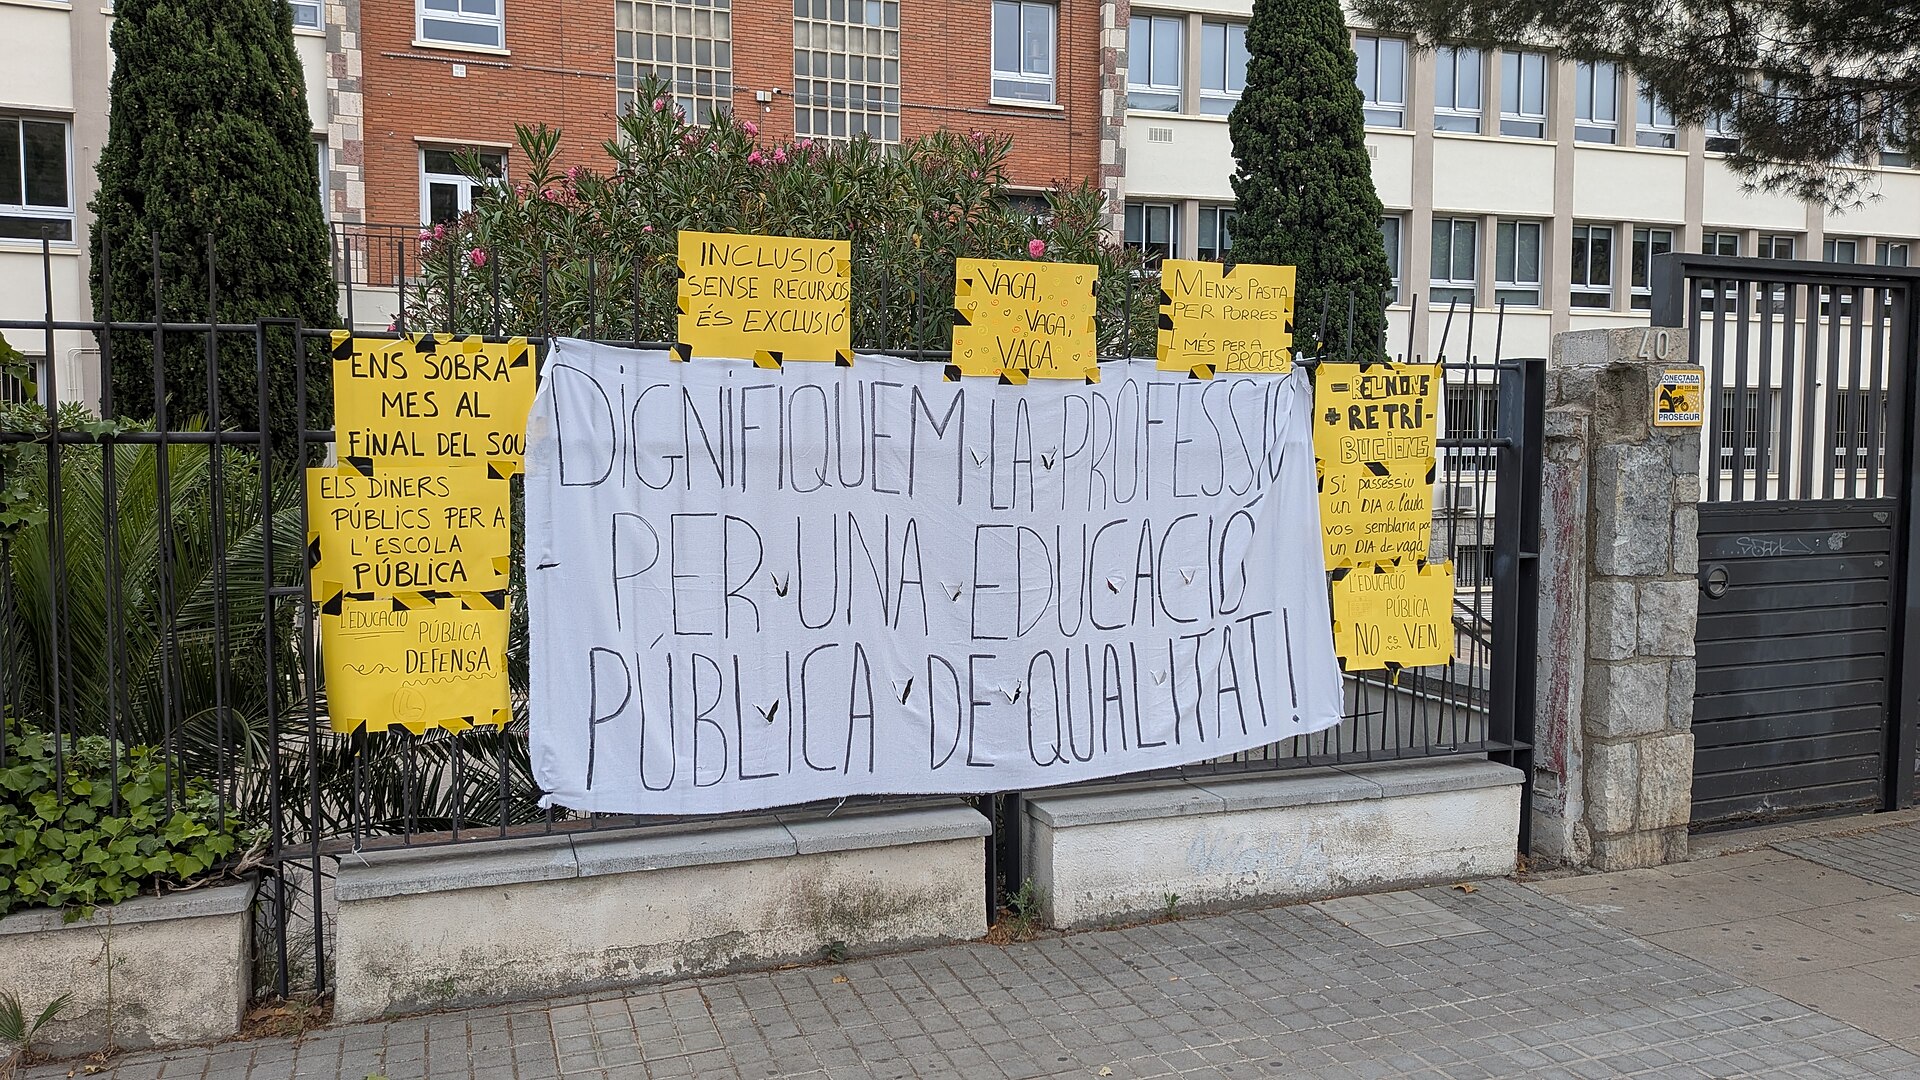 INCLUSIÓ
SENSE RECURSOS
ÉS EXCLUSIÓ
VAGA,
VAGA,
VAGA.
MENYS PASTA
PER PORRES
I MÉS PER A
PROFES!
ENS SOBRA
MES AL
FINAL DEL SOU
ELS DINERS
PÚBLICS PER A
L'ESCOLA
PÚBLICA
L'EDUCACIÓ
PÚBLICA
es DEFENSA
DIGNIFIQUEM LA PROFESSIÓ
PER UNA EDUCACIÓ
PÚBLICA DE QUALITAT!
- REUNIONS
+ RETRI-
BUCIONS
Si passessiu
un DIA a l'aula
vos semblaria poc
un DIA de vaga
L'EDUCACIÓ
PÚBLICA
NO es VEN,
40
CONECTADA
PROSEGUR